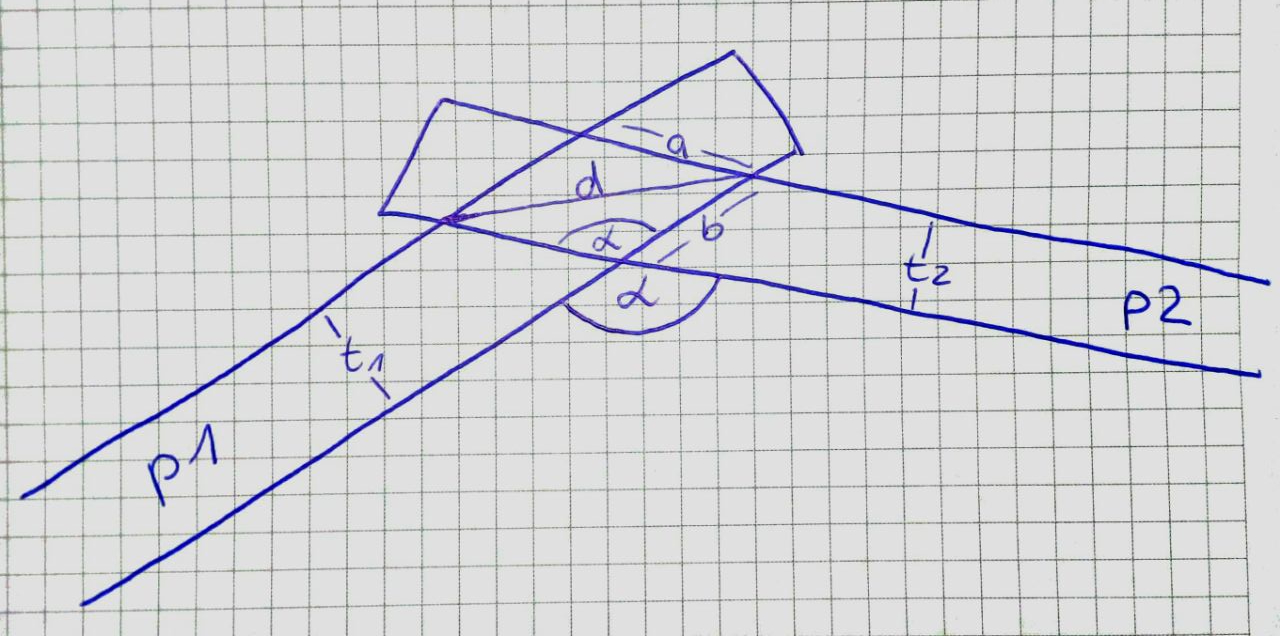 a
d
b
α
t2
α
p2
t1
p1